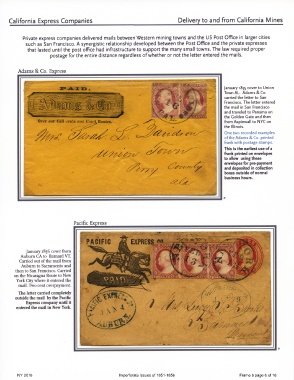 California Express Companies
Delivery to and from California Mines
Private express companies delivered mails between Western mining towns and the US Post Office in larger cities
such as San Francisco. A synergistic relationship developed between the Post Office and the private expresses
that lasted until the post office had infrastructure to support the many small towns. The law required proper
postage for the entire distance regardless of whether or not the letter entered the mails.
Adams & Co. Express
PAID.
Over our California and Coast Routes
Mrs. Sarah L. Davidson
Union Town
County
January 1855 cover to Union
Town Al., Adams & Co.
carried the letter to San
Francisco. The letter entered
the mail in San Francisco
and traveled to Panama on
the Golden Gate and then
from Aspinwall to NYC on
the Illinois.
One two recorded examples
of the Adams & Co. printed
frank with postage stamps.
This is the earliest use of a
frank printed on envelopes
to allow using these
envelopes for pre-payment
and deposited in collection
boxes outside of normal
business hours.
Pacific Express
January 1856 cover from
Auburn CA to Barnard VT.
Carried out of the mail from
Auburn to Sacramento and
then to San Francisco. Carried
on the Nicaragua Route to New
York City where it entered the
mail. Two cent overpayment.
The letter carried completely
outside the mail by the Pacific
Express company until it
entered the mail in New York.
PACIFIC EXPRESS CO.
PAID
PACIFIC EXPRESS CO
AUBURN
PIY 2019
Imperforate Issues of 1851-1856
Frame 6 page 6 of 16